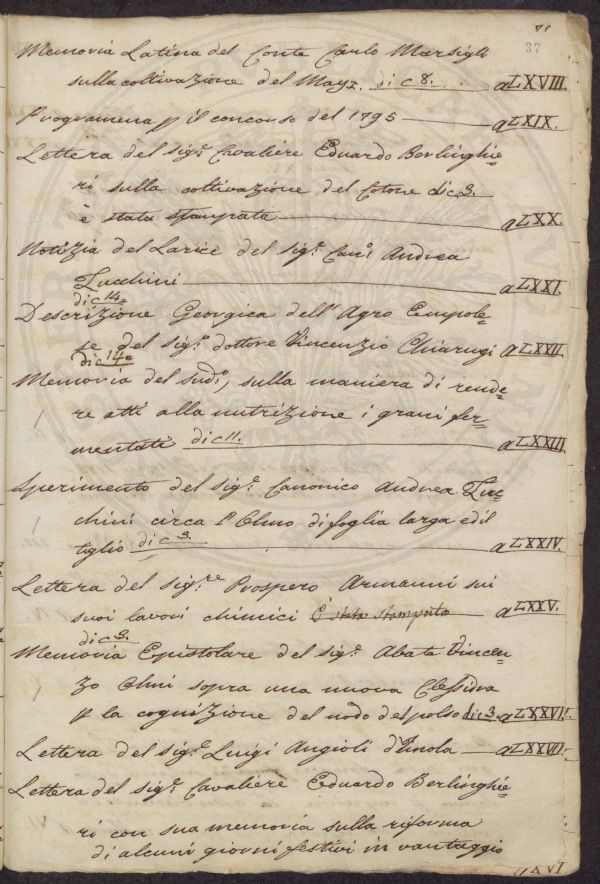 71
37
Memoria Latina del Conte Carlo Marsigli
sulla coltivazione del Mayz. di c 8. a LXVIII.
Programma p il concorso del 1795 a LXIX.
Lettera del sigr. Cavaliere Eduardo Berlinghie=
ri sulla coltivazione del Cotone di c 3.
è stata stampata a LXX.
Notizia del Larice del sigr. Cano. Andrea
Zucchini a LXXI.
di c 14.
Descrizione Georgica dell' Agro Empole=
se del sigr. dottore Vincenzio Chiarugi a LXXII.
di c 14.
Memoria del sudo., sulla maniera di rende=
re atti alla nutrizione i grani fer=
mentati di c 11. a LXXIII.
Sperimento del sigr. Canonico Andrea Zuc=
chini circa l'Olmo di foglia larga ed il
tiglio di c 3. a LXXIV.
Lettera del sigre. Prospero Armanni sui
suoi lavori chimici È stata stampata a LXXV.
di c 3.
Memoria Epistolare del sigr. Abate Vincen=
zo Olmi sopra una nuova Clessidra
p la cognizione del modo del polso di c 3. a LXXVI.
Lettera del sigr. Luigi Angioli d'Imola a LXXVII.
Lettera del sigr. Cavaliere Eduardo Berlinghie=
ri con sua memoria sulla riforma
di alcuni giorni festivi in vantaggio